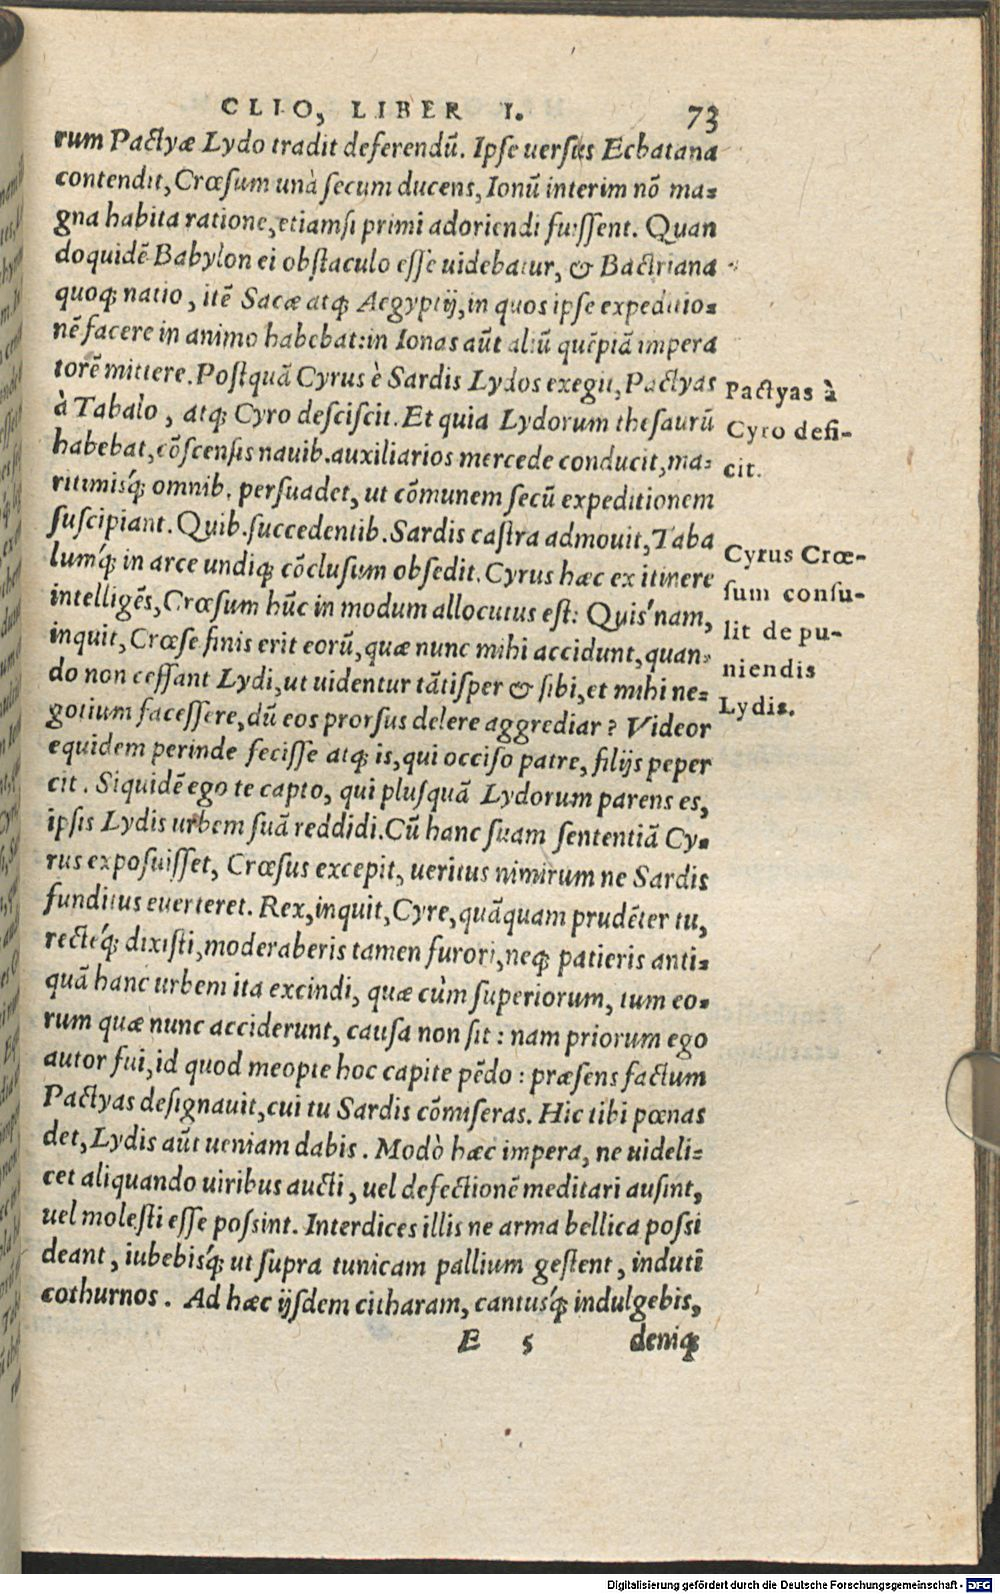 CLIO, LIBER I. 73
rum Pactyæ Lydo tradit deferendũ. Ipse uersus Ecbatana
contendit, Crœsum unà secum ducens, Ionũ interim nõ ma-
gna habita ratione, etiamsi primi adoriendi fuissent. Quan
doquidẽ Babylon ei obstaculo esse uidebatur, & Bactriana
quoq; natio, itẽ Sacæ atq; Aegyptij, in quos ipse expeditio-
nẽ facere in animo habebat: in Ionas aũt aliũ quẽpiã impera
torẽ mittere. Postquã Cyrus è Sardis Lydos exegit, Pactyas
à Tabalo, atq; Cyro desciscit. Et quia Lydorum thesaurũ
habebat, cõscensis nauib. auxiliarios mercede conducit, ma-
ritimisq́; omnib. persuadet, ut cõmunem secũ expeditionem
suscipiant. Quib. succedentib. Sardis castra admouit, Taba
lumq́; in arce undiq; cõclusum obsedit. Cyrus hæc ex itinere
intelligẽs, Crœsum hũc in modum allocutus est: Quis'nam,
inquit, Crœse finis erit eorũ, quæ nunc mihi accidunt, quan-
do non cessant Lydi, ut uidentur tãtisper & sibi, et mihi ne-
gotium facessere, dũ eos prorsus delere aggrediar? Videor
equidem perinde fecisse atq; is, qui occiso patre, filijs peper
cit. Siquidẽ ego te capto, qui plusquã Lydorum parens es,
ipsis Lydis urbem suã reddidi. Cũ hanc suam sententiã Cy-
rus exposuisset, Crœsus excepit, ueritus nimirum ne Sardis
funditus euerteret. Rex, inquit, Cyre, quãquam prudẽter tu,
recteq́; dixisti, moderaberis tamen furori, neq; patieris anti-
quã hanc urbem ita excindi, quæ cùm superiorum, tum eo-
rum quæ nunc acciderunt, causa non sit: nam priorum ego
autor fui, id quod meopte hoc capite pẽdo: præsens factum
Pactyas designauit, cui tu Sardis cõmiseras. Hic tibi pœnas
det, Lydis aũt ueniam dabis. Modò hæc impera, ne uideli-
cet aliquando uiribus aucti, uel defectionẽ meditari ausint,
uel molesti esse possint. Interdices illis ne arma bellica possi
deant, iubebisq́; ut supra tunicam pallium gestent, induti
cothurnos. Ad hæc ijsdem citharam, cantusq́; indulgebis,
E 5 deniq;
Pactyas à
Cyro defi-
cit.
Cyrus Crœ-
sum consu-
lit de pu-
niendis
Lydis.
Digitalisierung gefördert durch die Deutsche Forschungsgemeinschaft - DFG